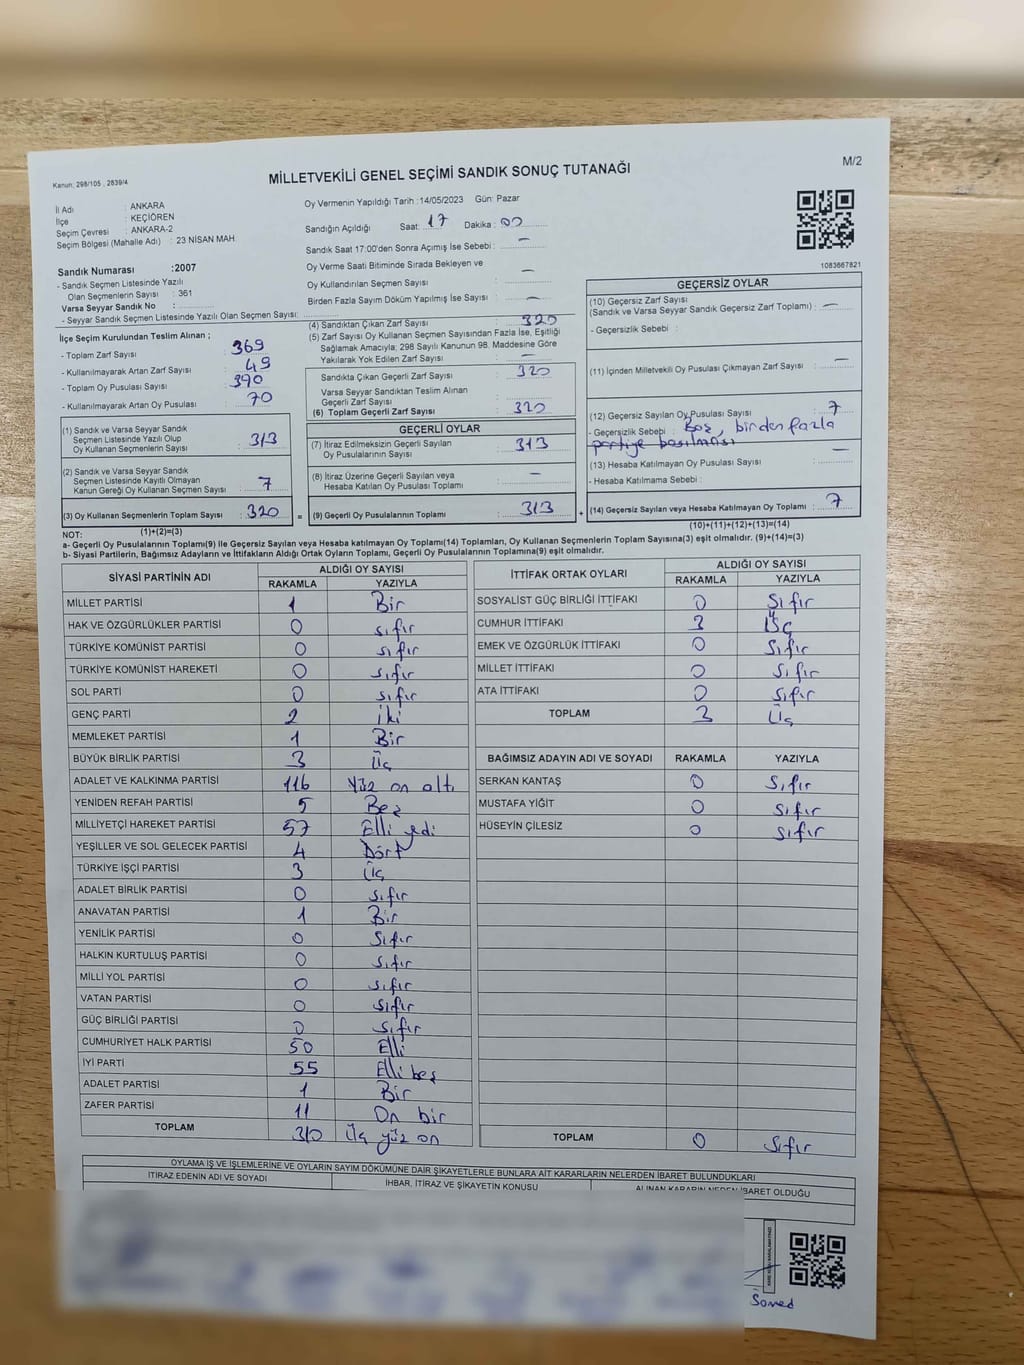 Kanun, 298/105 , 2839/4
MİLLETVEKİLİ GENEL SEÇİMİ SANDIK SONUÇ TUTANAĞI
M/2
İl Adı : ANKARA
İlçe : KEÇİÖREN
Seçim Çevresi : ANKARA-2
Seçim Bölgesi (Mahalle Adı) : 23 NİSAN MAH
Sandık Numarası :2007
- Sandık Seçmen Listesinde Yazılı
Olan Seçmenlerin Sayısı : 361
Varsa Seyyar Sandık No :
- Seyyar Sandık Seçmen Listesinde Yazılı Olan Seçmen Sayısı:
Oy Vermenin Yapıldığı Tarih :14/05/2023 Gün: Pazar
Sandığın Açıldığı Saat: 17 Dakika : 00
Sandık Saat 17:00'den Sonra Açımış İse Sebebi : —
Oy Verme Saati Bitiminde Sırada Bekleyen ve
Oy Kullandırılan Seçmen Sayısı : —
Birden Fazla Sayım Döküm Yapılmış İse Sayısı : —
1083667821
İlçe Seçim Kurulundan Teslim Alınan ;
- Toplam Zarf Sayısı : 369
- Kullanılmayarak Artan Zarf Sayısı : 49
- Toplam Oy Pusulası Sayısı : 390
- Kullanılmayarak Artan Oy Pusulası : 70
(1) Sandık ve Varsa Seyyar Sandık
Seçmen Listesinde Yazılı Olup
Oy Kullanan Seçmenlerin Sayısı : 313
(2) Sandık ve Varsa Seyyar Sandık
Seçmen Listesinde Kayıtlı Olmayan
Kanun Gereği Oy Kullanan Seçmen Sayısı : 7
(3) Oy Kullanan Seçmenlerin Toplam Sayısı : 320
(4) Sandıktan Çıkan Zarf Sayısı : 320
(5) Zarf Sayısı Oy Kullanan Seçmen Sayısından Fazla İse, Eşitliği
Sağlamak Amacıyla; 298 Sayılı Kanunun 98. Maddesine Göre
Yakılarak Yok Edilen Zarf Sayısı : —
Sandıkta Çıkan Geçerli Zarf Sayısı : 320
Varsa Seyyar Sandıktan Teslim Alınan
Geçerli Zarf Sayısı :
(6) Toplam Geçerli Zarf Sayısı : 320
GEÇERLİ OYLAR
(7) İtiraz Edilmeksizin Geçerli Sayılan
Oy Pusulalarının Sayısı : 313
(8) İtiraz Üzerine Geçerli Sayılan veya
Hesaba Katılan Oy Pusulası Toplamı : —
= (9) Geçerli Oy Pusulalarının Toplamı : 313
GEÇERSİZ OYLAR
(10) Geçersiz Zarf Sayısı
(Sandık ve Varsa Seyyar Sandık Geçersiz Zarf Toplamı) : —
- Geçersizlik Sebebi :
(11) İçinden Milletvekili Oy Pusulası Çıkmayan Zarf Sayısı : —
(12) Geçersiz Sayılan Oy Pusulası Sayısı : 7
- Geçersizlik Sebebi : Boş, birden fazla
partiye basılması
(13) Hesaba Katılmayan Oy Pusulası Sayısı : —
- Hesaba Katılmama Sebebi :
+ (14) Geçersiz Sayılan veya Hesaba Katılmayan Oy Toplamı : 7
NOT: (1)+(2)=(3)
(10)+(11)+(12)+(13)=(14)
a- Geçerli Oy Pusulalarının Toplamı(9) ile Geçersiz Sayılan veya Hesaba katılmayan Oy Toplamı(14) Toplamları, Oy Kullanan Seçmenlerin Toplam Sayısına(3) eşit olmalıdır. (9)+(14)=(3)
b- Siyasi Partilerin, Bağımsız Adayların ve İttifakların Aldığı Ortak Oyların Toplamı, Geçerli Oy Pusulalarının Toplamına(9) eşit olmalıdır.
SİYASİ PARTİNİN ADI ALDIĞI OY SAYISI
RAKAMLA YAZIYLA
MİLLET PARTİSİ 1 Bir
HAK VE ÖZGÜRLÜKLER PARTİSİ 0 sıfır
TÜRKİYE KOMÜNİST PARTİSİ 0 sıfır
TÜRKİYE KOMÜNİST HAREKETİ 0 sıfır
SOL PARTİ 0 sıfır
GENÇ PARTİ 2 iki
MEMLEKET PARTİSİ 1 Bir
BÜYÜK BİRLİK PARTİSİ 3 Üç
ADALET VE KALKINMA PARTİSİ 116 Yüz on altı
YENİDEN REFAH PARTİSİ 5 Beş
MİLLİYETÇİ HAREKET PARTİSİ 57 Elli yedi
YEŞİLLER VE SOL GELECEK PARTİSİ 4 Dört
TÜRKİYE İŞÇİ PARTİSİ 3 Üç
ADALET BİRLİK PARTİSİ 0 sıfır
ANAVATAN PARTİSİ 1 Bir
YENİLİK PARTİSİ 0 Sıfır
HALKIN KURTULUŞ PARTİSİ 0 sıfır
MİLLİ YOL PARTİSİ 0 sıfır
VATAN PARTİSİ 0 sıfır
GÜÇ BİRLİĞİ PARTİSİ 0 sıfır
CUMHURİYET HALK PARTİSİ 50 Elli
İYİ PARTİ 55 Elli beş
ADALET PARTİSİ 1 Bir
ZAFER PARTİSİ 11 On bir
TOPLAM 310 Üç yüz on
İTTİFAK ORTAK OYLARI ALDIĞI OY SAYISI
RAKAMLA YAZIYLA
SOSYALİST GÜÇ BİRLİĞİ İTTİFAKI 0 Sıfır
CUMHUR İTTİFAKI 3 Üç
EMEK VE ÖZGÜRLÜK İTTİFAKI 0 Sıfır
MİLLET İTTİFAKI 0 Sıfır
ATA İTTİFAKI 0 Sıfır
TOPLAM 3 Üç
BAĞIMSIZ ADAYIN ADI VE SOYADI RAKAMLA YAZIYLA
SERKAN KANTAŞ 0 Sıfır
MUSTAFA YİĞİT 0 Sıfır
HÜSEYİN ÇİLESİZ 0 Sıfır
TOPLAM 0 Sıfır
OYLAMA İŞ VE İŞLEMLERİNE VE OYLARIN SAYIM DÖKÜMÜNE DAİR ŞİKAYETLERLE BUNLARA AİT KARARLARIN NELERDEN İBARET BULUNDUKLARI
İTİRAZ EDENİN ADI VE SOYADI İHBAR, İTİRAZ VE ŞİKAYETİN KONUSU ALINAN KARARIN NEDEN İBARET OLDUĞU